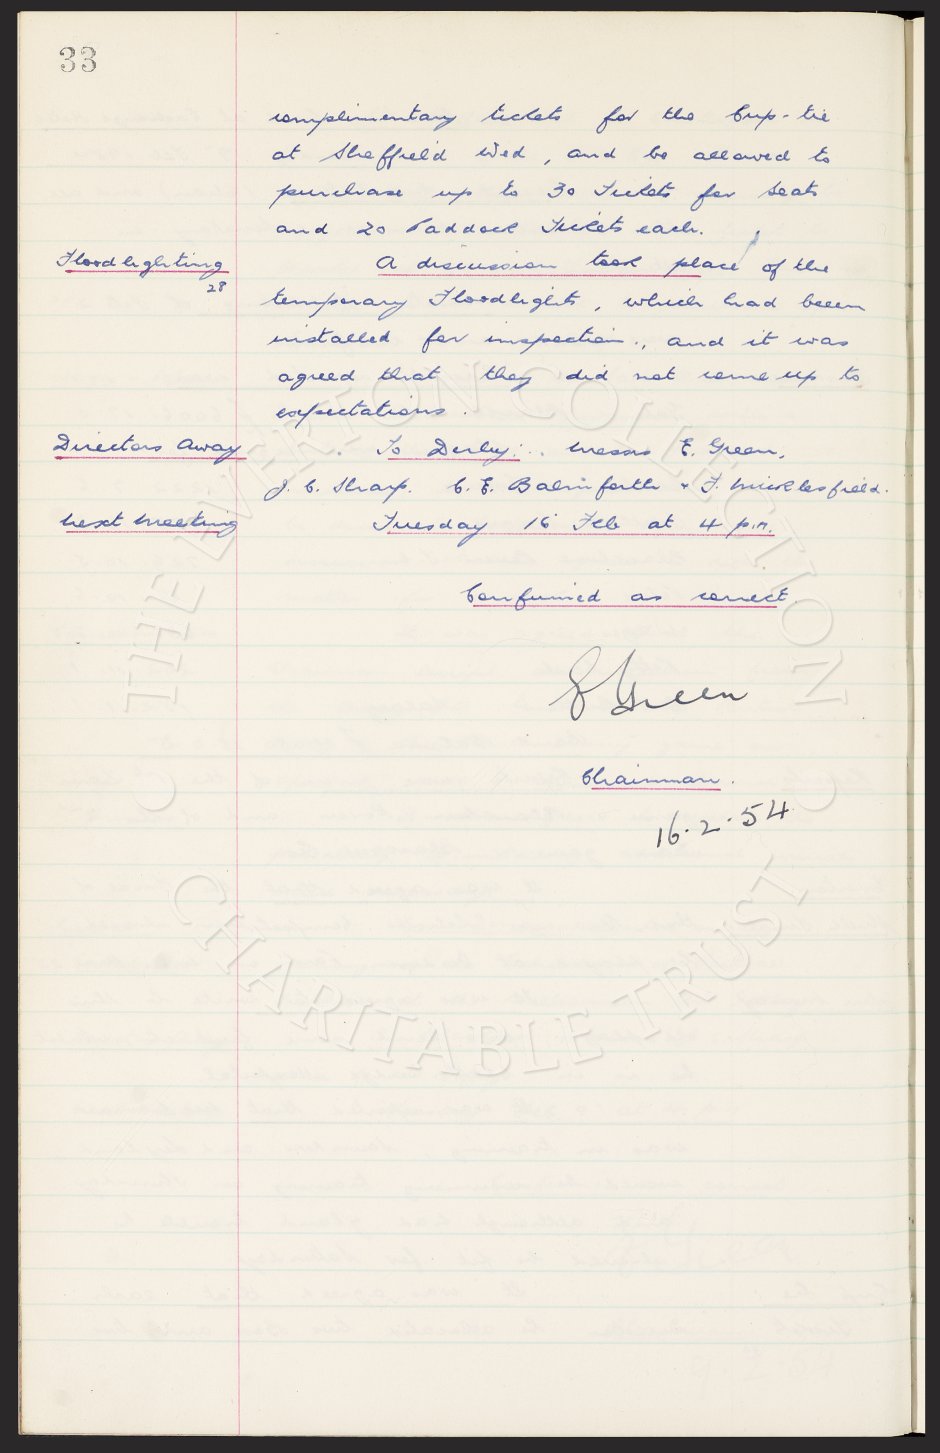 33
complimentary tickets for the Cup-tie
at Sheffield Wed, and be allowed to
purchase up to 30 Tickets for seats
and 20 Paddock Tickets each.
Floodlighting A discussion took place of the
28
temporary Floodlights, which had been
installed for inspection., and it was
agreed that they did not come up to
expectations.
Directors Away To Derby: Messrs E. Green,
J. C. Sharp. C. E. Balmforth + F. Micklesfield.
Next Meeting Tuesday 16 Feb at 4 p.m.
Confirmed as correct.
E Green
Chairman.
16.2.54
© THE EVERTON COLLECTION
CHARITABLE TRUST